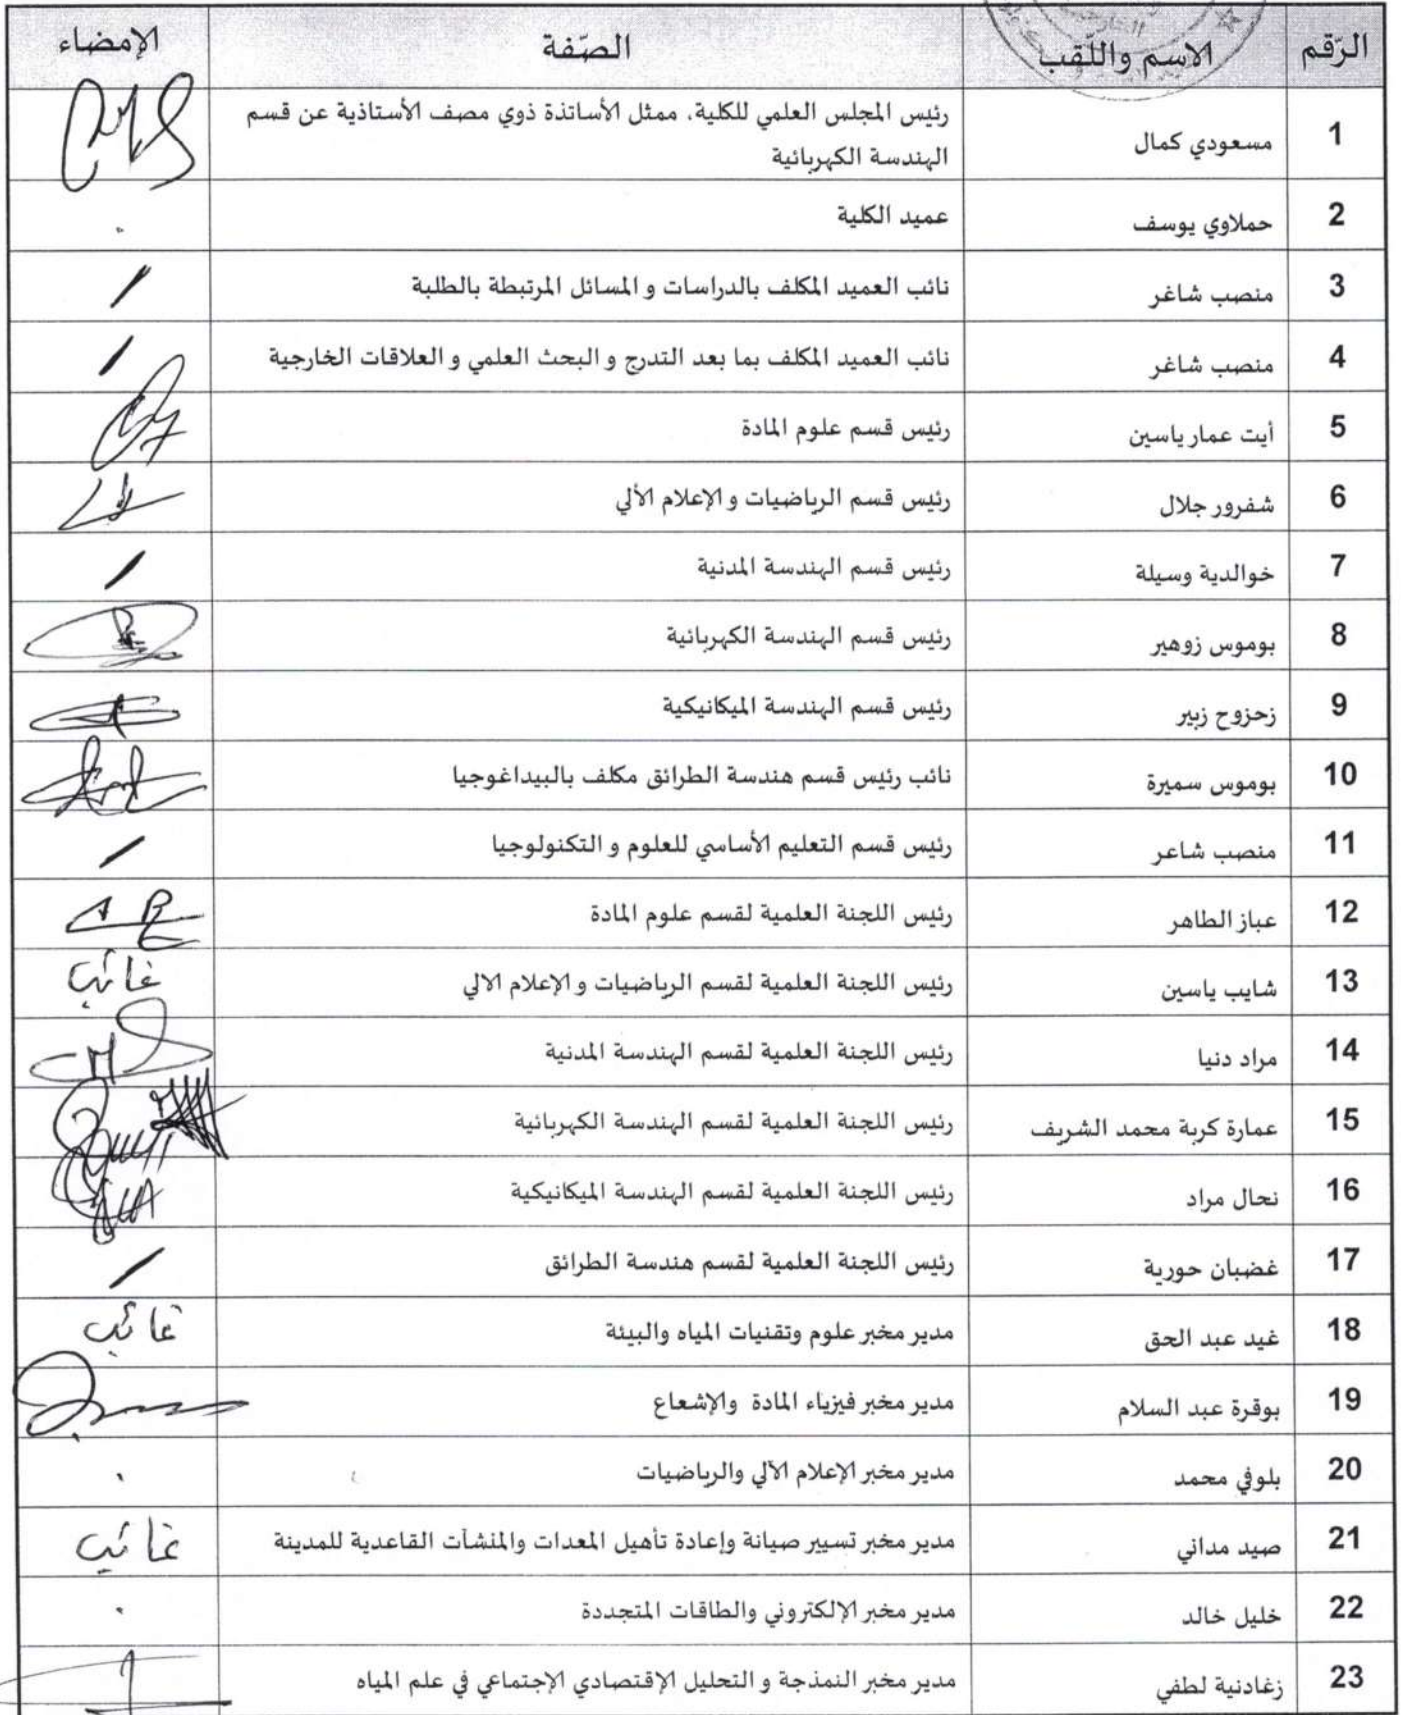 الرّقم الاسم واللّقب الصّفة الإمضاء
1 مسعودي كمال رئيس المجلس العلمي للكلية، ممثل الأساتذة ذوي مصف الأستاذية عن قسم
الهندسة الكهربائية
2 حملاوي يوسف عميد الكلية
3 منصب شاغر نائب العميد المكلف بالدراسات و المسائل المرتبطة بالطلبة
4 منصب شاغر نائب العميد المكلف بما بعد التدرج و البحث العلمي و العلاقات الخارجية
5 أيت عمار ياسين رئيس قسم علوم المادة
6 شفرور جلال رئيس قسم الرياضيات و الإعلام الألي
7 خوالدية وسيلة رئيس قسم الهندسة المدنية
8 بوموس زوهير رئيس قسم الهندسة الكهربائية
9 زحزوح زبير رئيس قسم الهندسة الميكانيكية
10 بوموس سميرة نائب رئيس قسم هندسة الطرائق مكلف بالبيداغوجيا
11 منصب شاعر رئيس قسم التعليم الأساسي للعلوم و التكنولوجيا
12 عباز الطاهر رئيس اللجنة العلمية لقسم علوم المادة
13 شايب ياسين رئيس اللجنة العلمية لقسم الرياضيات و الإعلام الالي غائب
14 مراد دنيا رئيس اللجنة العلمية لقسم الهندسة المدنية
15 عمارة كربة محمد الشريف رئيس اللجنة العلمية لقسم الهندسة الكهربائية
16 نحال مراد رئيس اللجنة العلمية لقسم الهندسة الميكانيكية
17 غضبان حورية رئيس اللجنة العلمية لقسم هندسة الطرائق
18 غيد عبد الحق مدير مخبر علوم وتقنيات المياه والبيئة غائب
19 بوقرة عبد السلام مدير مخبر فيزياء المادة والإشعاع
20 بلوفي محمد مدير مخبر الإعلام الآلي والرياضيات
21 صيد مداني مدير مخبر تسيير صيانة وإعادة تأهيل المعدات والمنشآت القاعدية للمدينة غائب
22 خليل خالد مدير مخبر الإلكتروني والطاقات المتجددة
23 زغادنية لطفي مدير مخبر النمذجة و التحليل الإقتصادي الإجتماعي في علم المياه